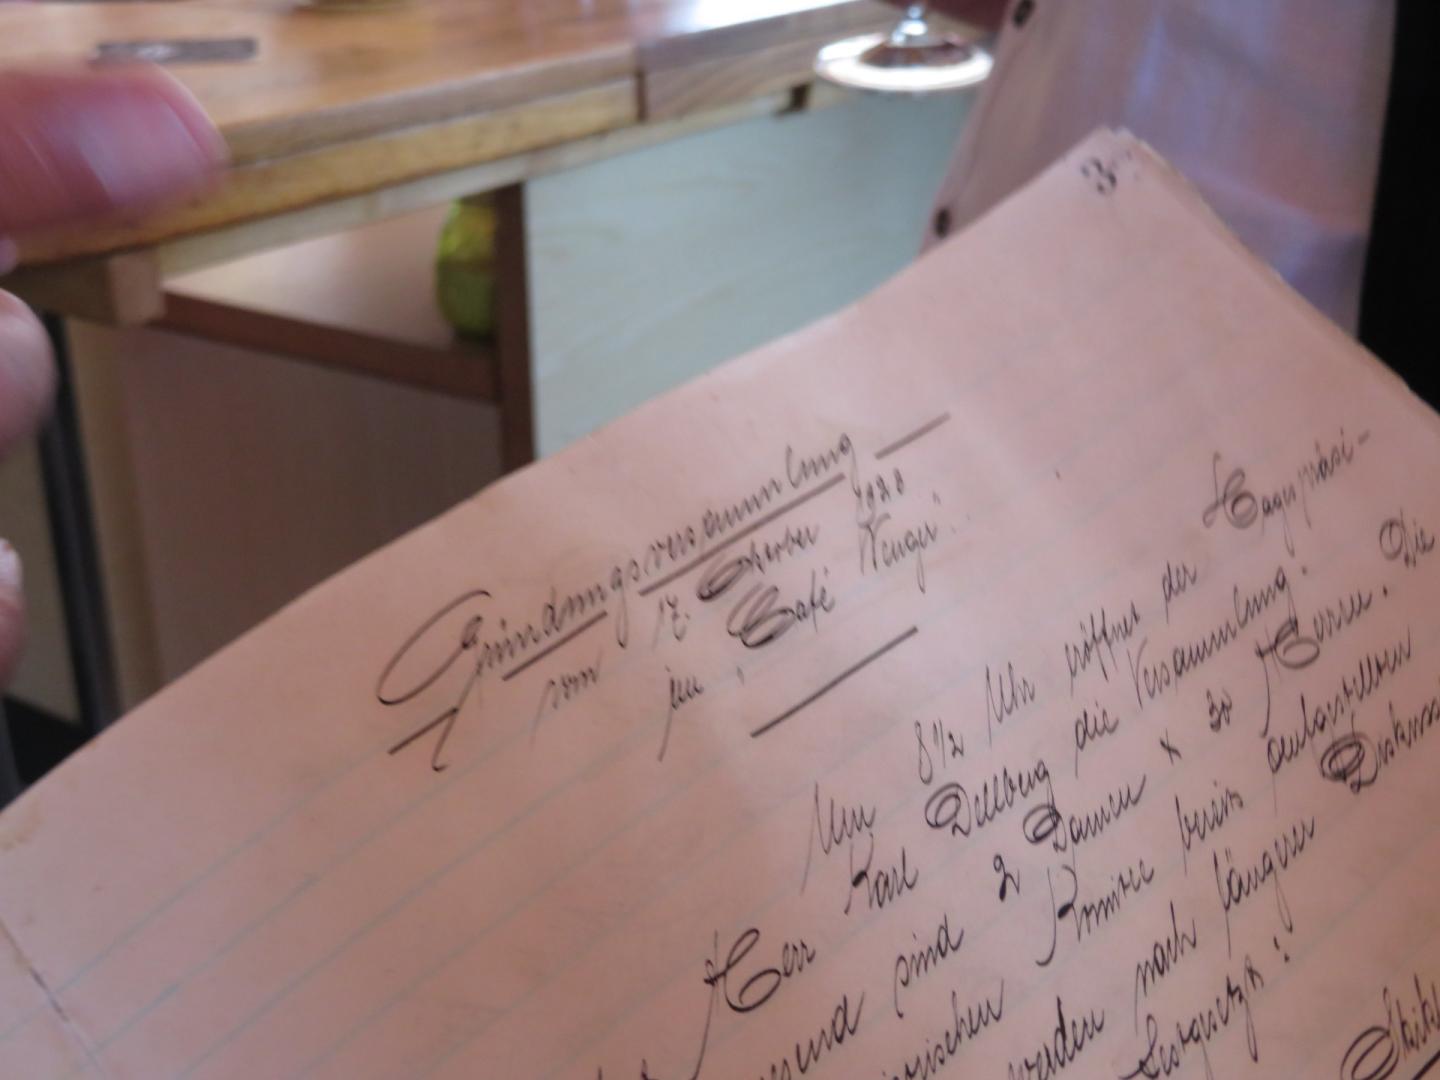 3
Gründungsversammlung
vom 17. Oktober 1928
im "Café Wenger".
Um 8 1/2 Uhr eröffnet der Tagespräsi-
Herr Karl Dellberg die Versammlung.
sind 2 Damen & 30 Herren. Die
Komitee bereits
werden nach längerer Diskuss
festgesetzt: